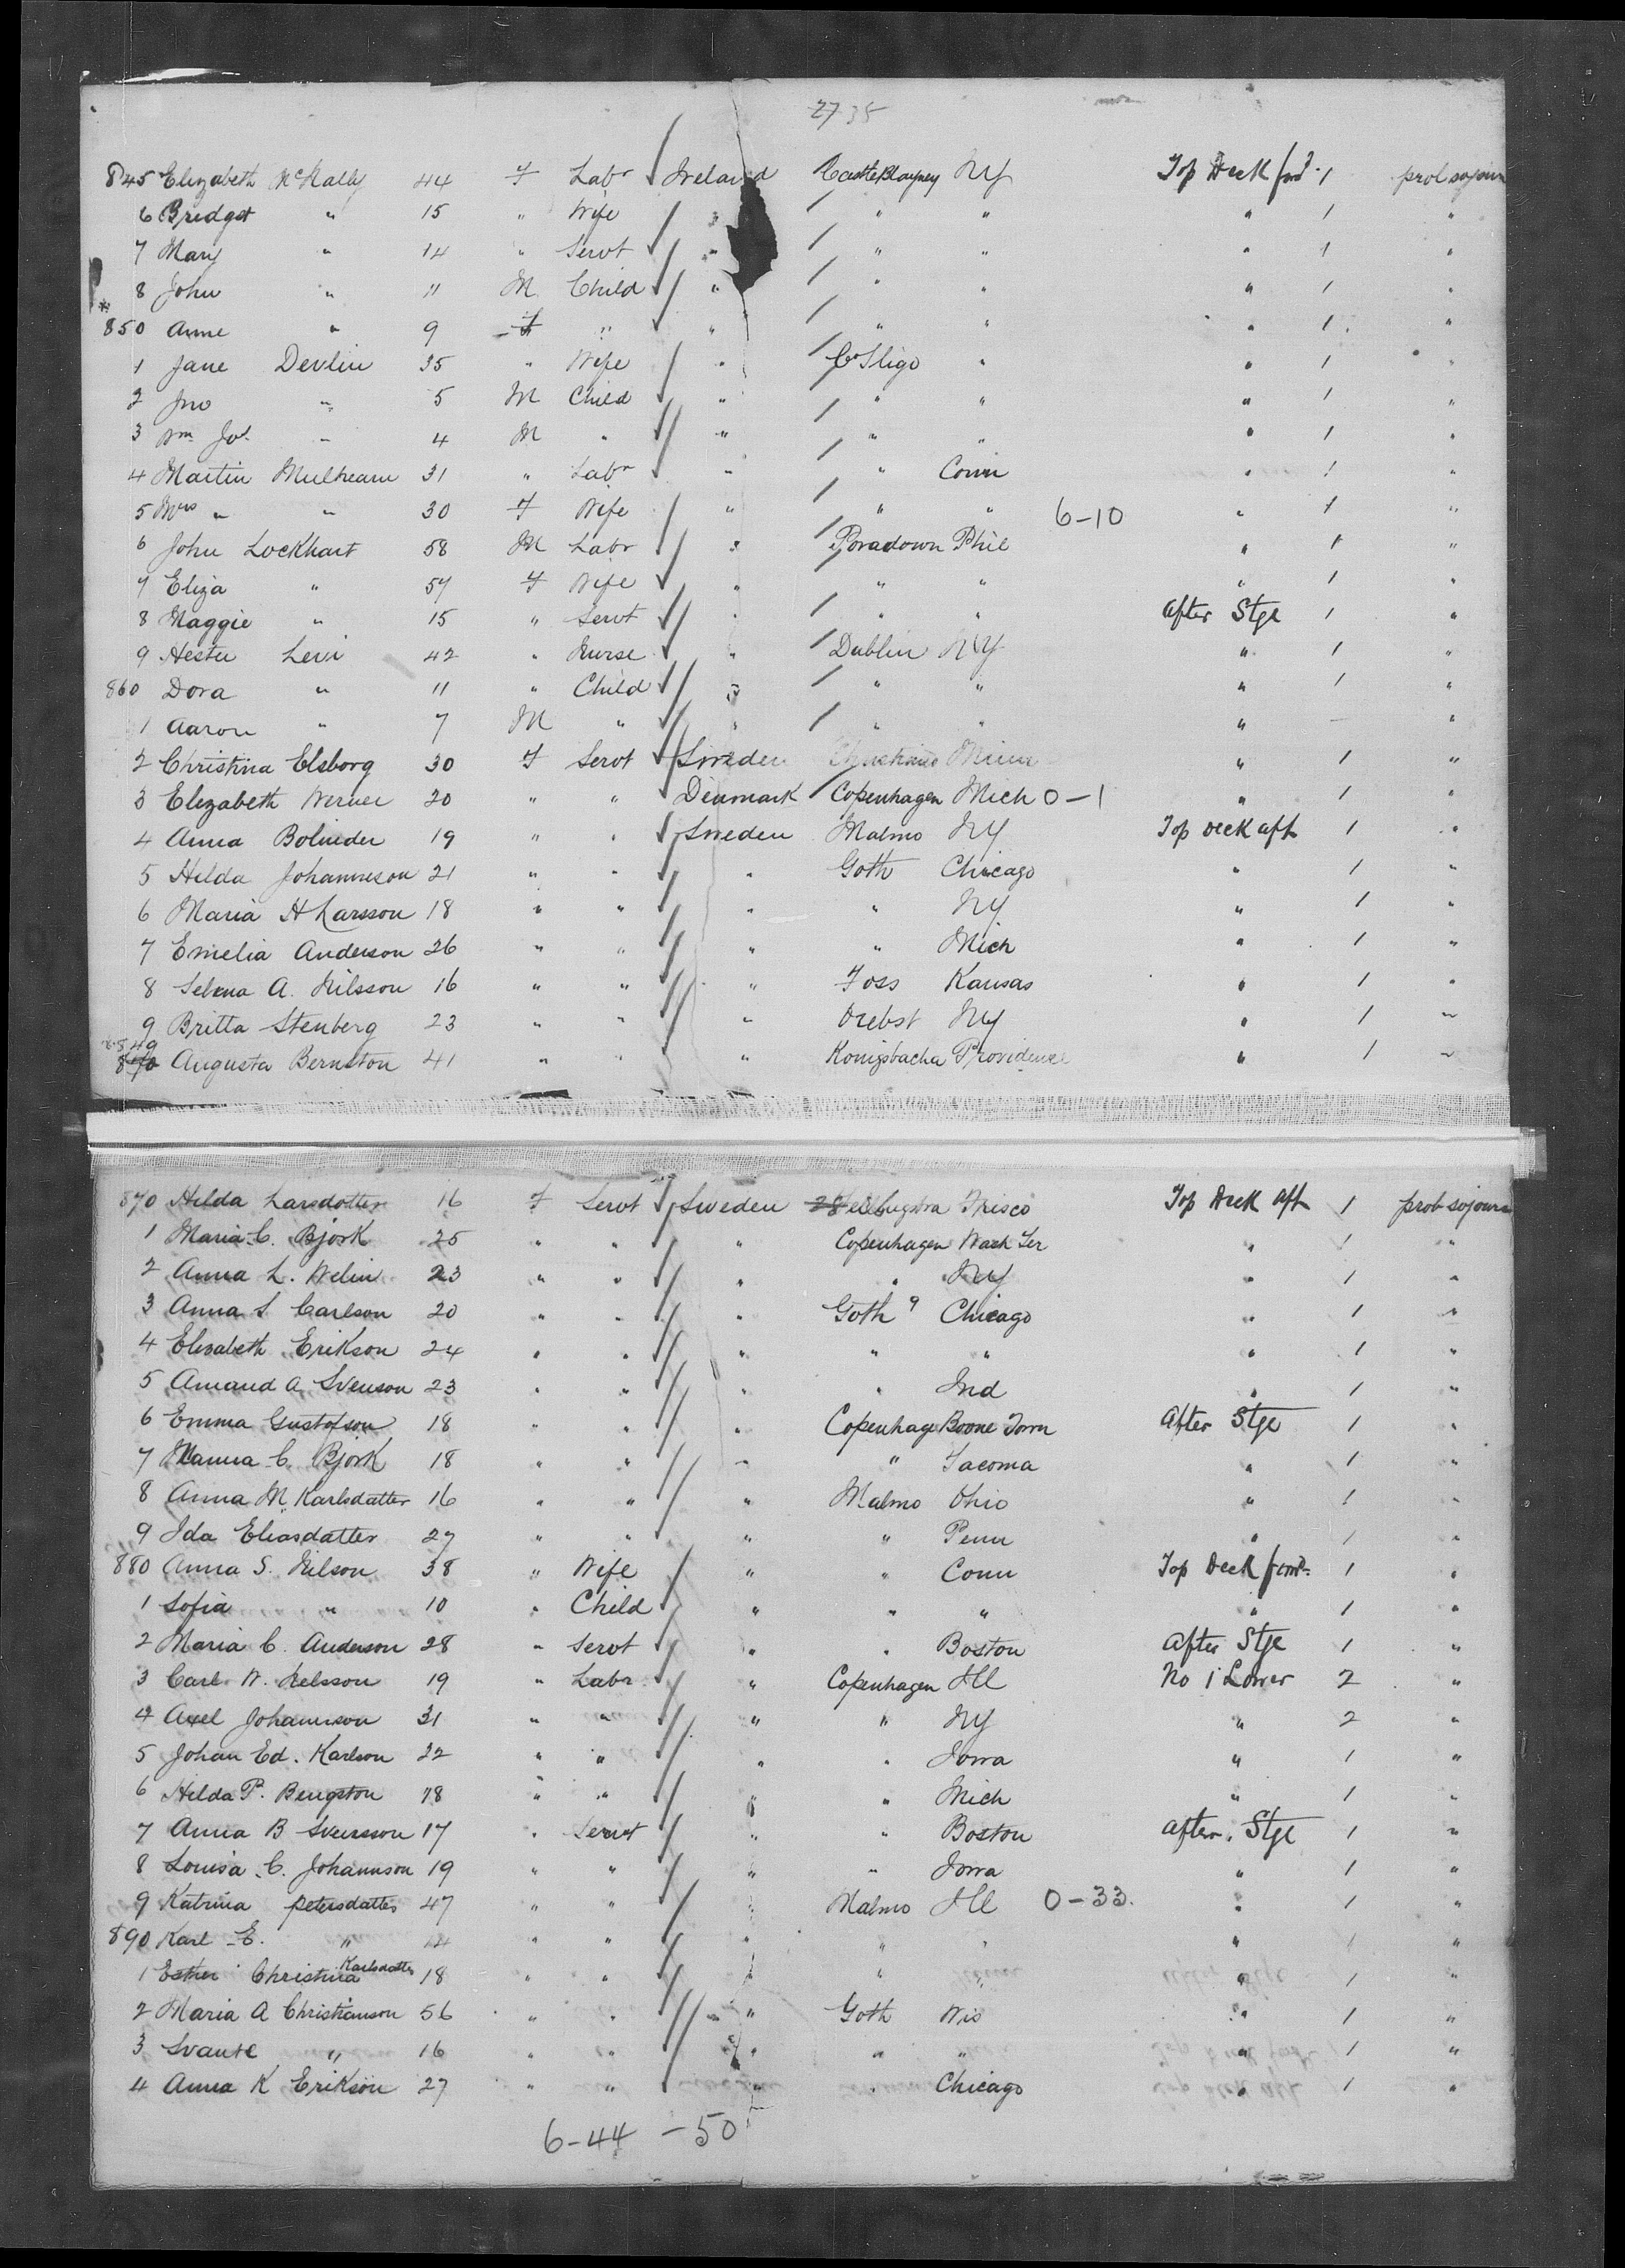 27 35
845 Elizabeth McNally 44 F Labr Ireland Castle Blayney NY Top Deck fwd. 1 prol sojourn
6 Bridget " 15 " Wife " " " " 1 "
7 Mary " 14 " Servt " " " " 1 "
8 John " 11 M Child " " " " 1 "
850 Anne " 9 F " " " " " 1 "
1 Jane Devlin 35 " Wife " Co Sligo " " 1 "
2 Jno " 5 M Child " " " " 1 "
3 Wm Jos. " 4 M " " " " " 1 "
4 Martin Mulhearn 31 " Labr " " Conn " 1 "
5 Mrs " " 30 F Wife " " " 6-10 " 1 "
6 John Lockhart 58 M Labr " Poradown Phil " 1 "
7 Eliza " 57 F Wife " " " " 1 "
8 Maggie " 15 " Servt " " " After Stge 1 "
9 Hester Levi 42 " Nurse " Dublin NY " 1 "
860 Dora " 11 " Child " " " " 1 "
1 Aaron " 7 M " " " " " - "
2 Christina Elsborg 30 F Servt Sweden Minn " 1 "
3 Elizabeth Werner 20 " " Denmark Copenhagen Mich 0-1 " 1 "
4 Anna Bolinder 19 " " Sweden Malmo NY Top Deck aft 1 "
5 Hilda Johanneson 21 " " " Goth Chicago " 1 "
6 Maria H Larsson 18 " " " " NY " 1 "
7 Emelia Anderson 26 " " " " Mich " 1 "
8 Selma A. Nilsson 16 " " " Foss Kansas " 1 "
9 Britta Stenberg 23 " " " Orebst NY " 1 "
870 Augusta Bernston 41 " " " Konigsbacha Providence " 1 "
870 Hilda Larsdotter 16 F Servt Sweden Frisco Top Deck Aft 1 prob sojourn
1 Maria C. Bjork 25 " " " Copenhagen Wash Ter " 1 "
2 Anna L. Welin 23 " " " " NY " 1 "
3 Anna S Carlson 20 " " " Goth 9 Chicago " 1 "
4 Elisabeth Erikson 24 " " " " " " 1 "
5 Amand A Svenson 23 " " " " Ind " 1 "
6 Emma Gustafson 18 " " " Copenhage Boone Iowa After Stge 1 "
7 Hanna C. Bjork 18 " " " " Tacoma " 1 "
8 Anna M. Karlsdatter 16 " " " Malmo Ohio " 1 "
9 Ida Eliasdatter 27 " " " " Penn " 1 "
880 Anna S. Nilson 38 " Wife " " Conn Top Deck fwd. 1 "
1 Sofia " 10 " Child " " " " 1 "
2 Maria C. Anderson 28 " Servt " " Boston After Stge 1 "
3 Carl W. Nelsson 19 " Labr " Copenhagen Ill No 1 Lower 2 "
4 Axel Johannson 31 " " " " NY " 2 "
5 Johan Ed. Karlson 22 " " " " Iowa " 1 "
6 Hilda P. Bengston 18 " " " " Mich " 1 "
7 Anna B Svensson 17 " Servt " " Boston After Stge 1 "
8 Louisa C. Johannson 19 " " " " Iowa " 1 "
9 Katrina petersdatter 47 " " " Malmo Ill 0-33. " 1 "
890 Karl E. " 14 " " " " " " 1 "
1 Esther Christina Karlsdatter 18 " " " " " " 1 "
2 Maria A Christianson 56 " " " Goth Wis " 1 "
3 Svante " 16 " " " " " " 1 "
4 Anna K Erikson 27 " " " " Chicago " 1 "
6-44 -50